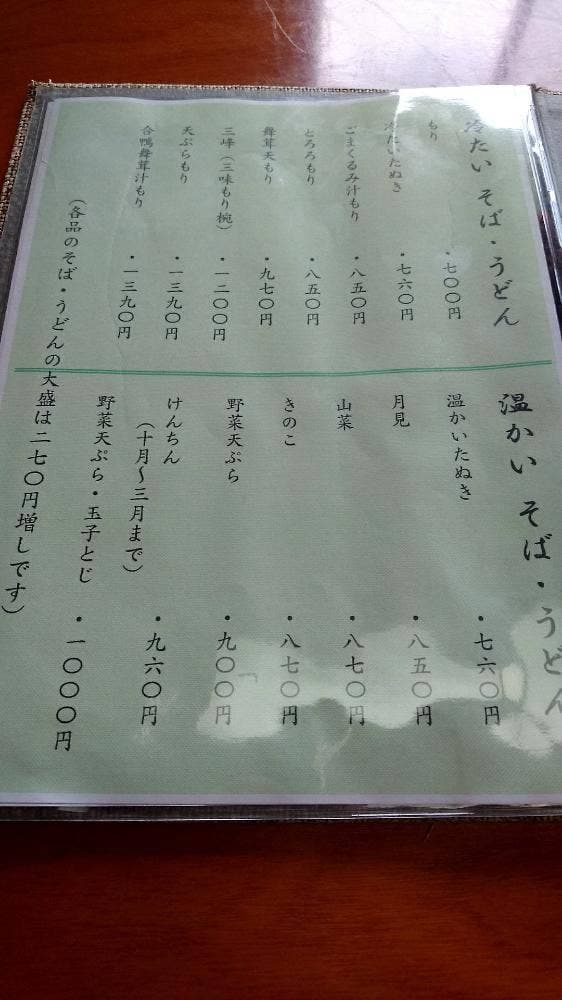 冷たい そば・うどん
もり ・七〇〇円
冷たいたぬき ・七六〇円
ごまくるみ汁もり ・八五〇円
とろろもり ・八五〇円
舞茸天もり ・九七〇円
三峰（三味もり椀） ・一二〇〇円
天ぷらもり ・一三九〇円
合鴨舞茸汁もり ・一三九〇円
温かい そば・うどん
温かいたぬき ・七六〇円
月見 ・八五〇円
山菜 ・八七〇円
きのこ ・八七〇円
野菜天ぷら ・九〇〇円
けんちん ・九六〇円
（十月～三月まで）
野菜天ぷら・玉子とじ ・一〇〇〇円
（各品のそば・うどんの大盛は二七〇円増しです）